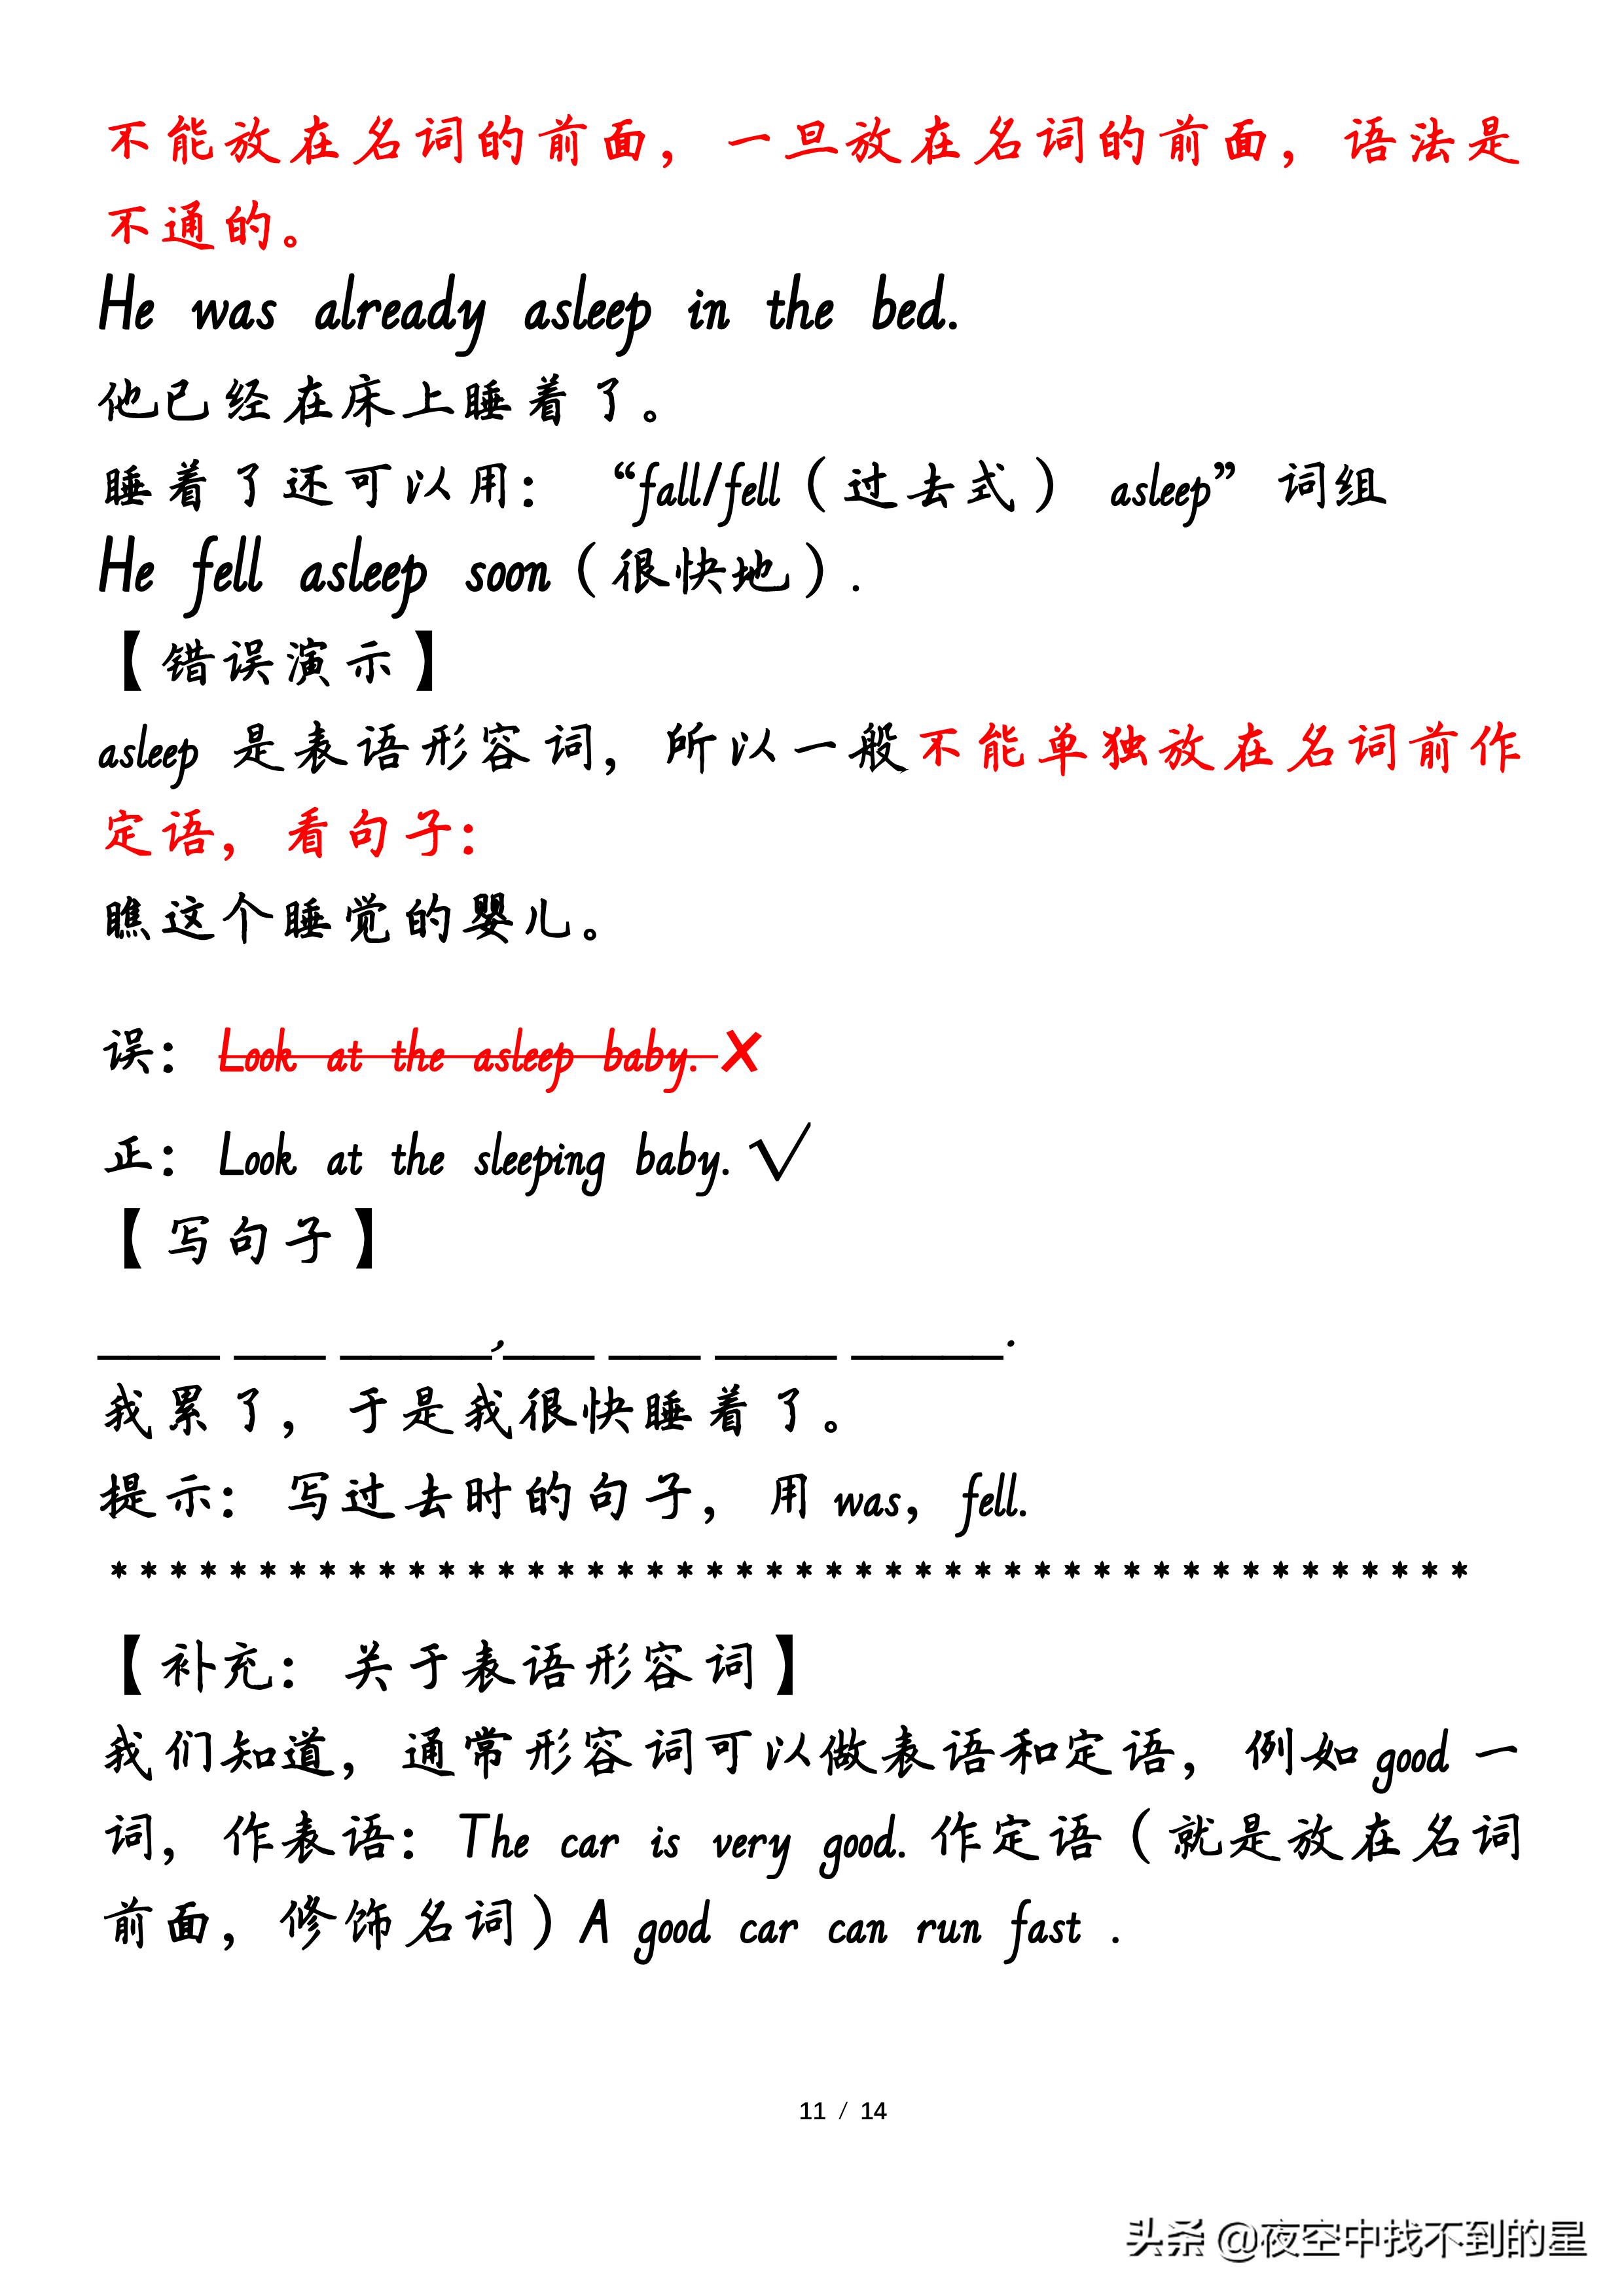 不能放在名词的前面，一旦放在名词的前面，语法是
不通的。
He was already asleep in the bed.
他已经在床上睡着了。
睡着了还可以用：“fall/fell（过去式） asleep”词组
He fell asleep soon（很快地）.
【错误演示】
asleep 是表语形容词，所以一般不能单独放在名词前作
定语，看句子：
瞧这个睡觉的婴儿。
误：Look at the asleep baby. ×
正：Look at the sleeping baby. √
【写句子】
____ ___ _____,___ ___ ____ _____.
我累了，于是我很快睡着了。
提示：写过去时的句子，用 was，fell.
**********************************************
【补充：关于表语形容词】
我们知道，通常形容词可以做表语和定语，例如 good 一
词，作表语：The car is very good. 作定语（就是放在名词
前面，修饰名词）A good car can run fast .
11 / 14
头条 @夜空中找不到的星